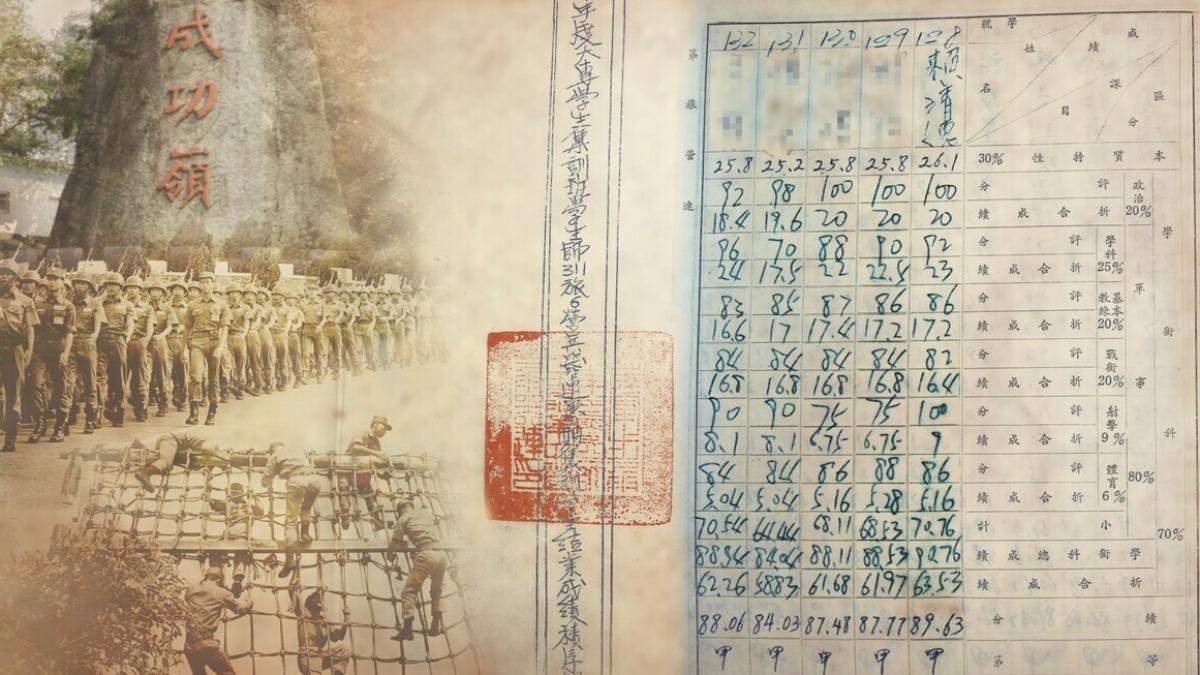 成功嶺
年度大專學生集訓班學生師311旅6營
結業成績積序
第 旅 營 連
成績區分
課目
學號
姓名
132 131 130 129 128
賴清德
25.8 25.2 25.8 25.8 26.1 本質特性 30%
學術科 70%
政治 20%
92 98 100 100 100 評分
18.4 19.6 20 20 20 折合成績
軍事 80%
學科 25%
96 70 88 90 92 評分
24 17.5 22 22.5 23 折合成績
基本教練 20%
83 85 87 86 86 評分
16.6 17 17.4 17.2 17.2 折合成績
戰術 20%
84 84 84 84 82 評分
16.8 16.8 16.8 16.8 16.4 折合成績
射擊 9%
90 90 75 75 100 評分
8.1 8.1 6.75 6.75 9 折合成績
體育 6%
84 84 86 88 86 評分
5.04 5.04 5.16 5.28 5.16 折合成績
70.54 64.44 68.11 68.53 70.76 小計
88.94 84.04 88.11 88.53 90.76 學術科總成績
62.26 58.83 61.68 61.97 63.53 折合成績
88.06 84.03 87.48 87.77 89.63 績分
甲 甲 甲 甲 甲 等第